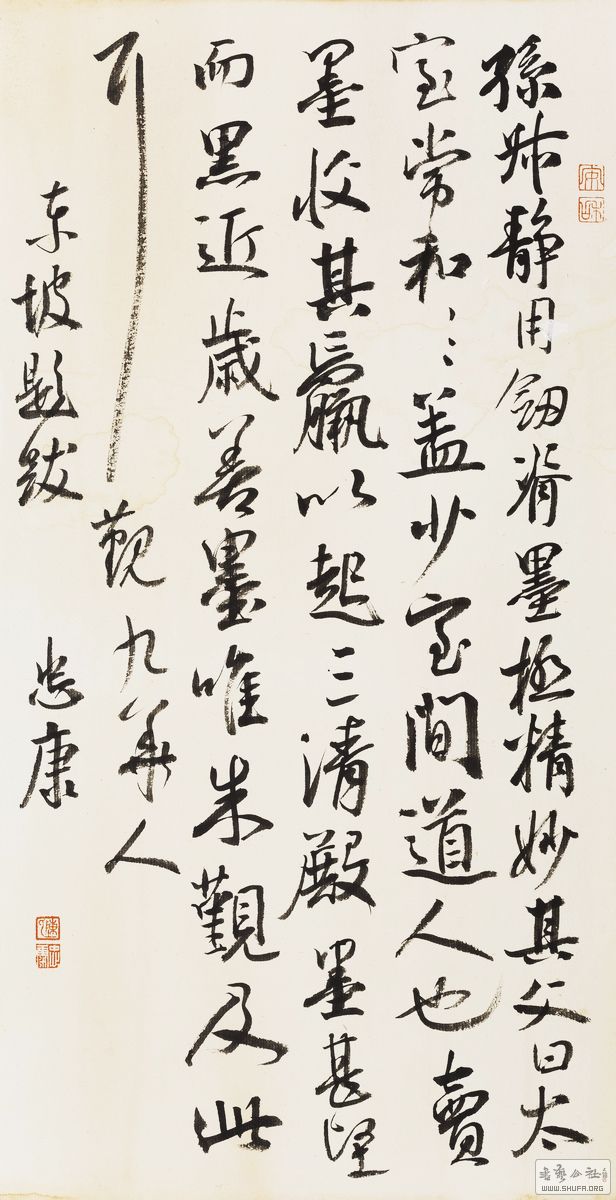 孫叔静用劔脊墨極精妙其文曰太
室常和〻盖少室間道人也賣
墨收其贏以起三清殿墨甚堅
而黑近歲善墨唯朱覲及此
耳覲九華人
东坡題跋 忠康
書藝公社
WWW.SHUFA.ORG